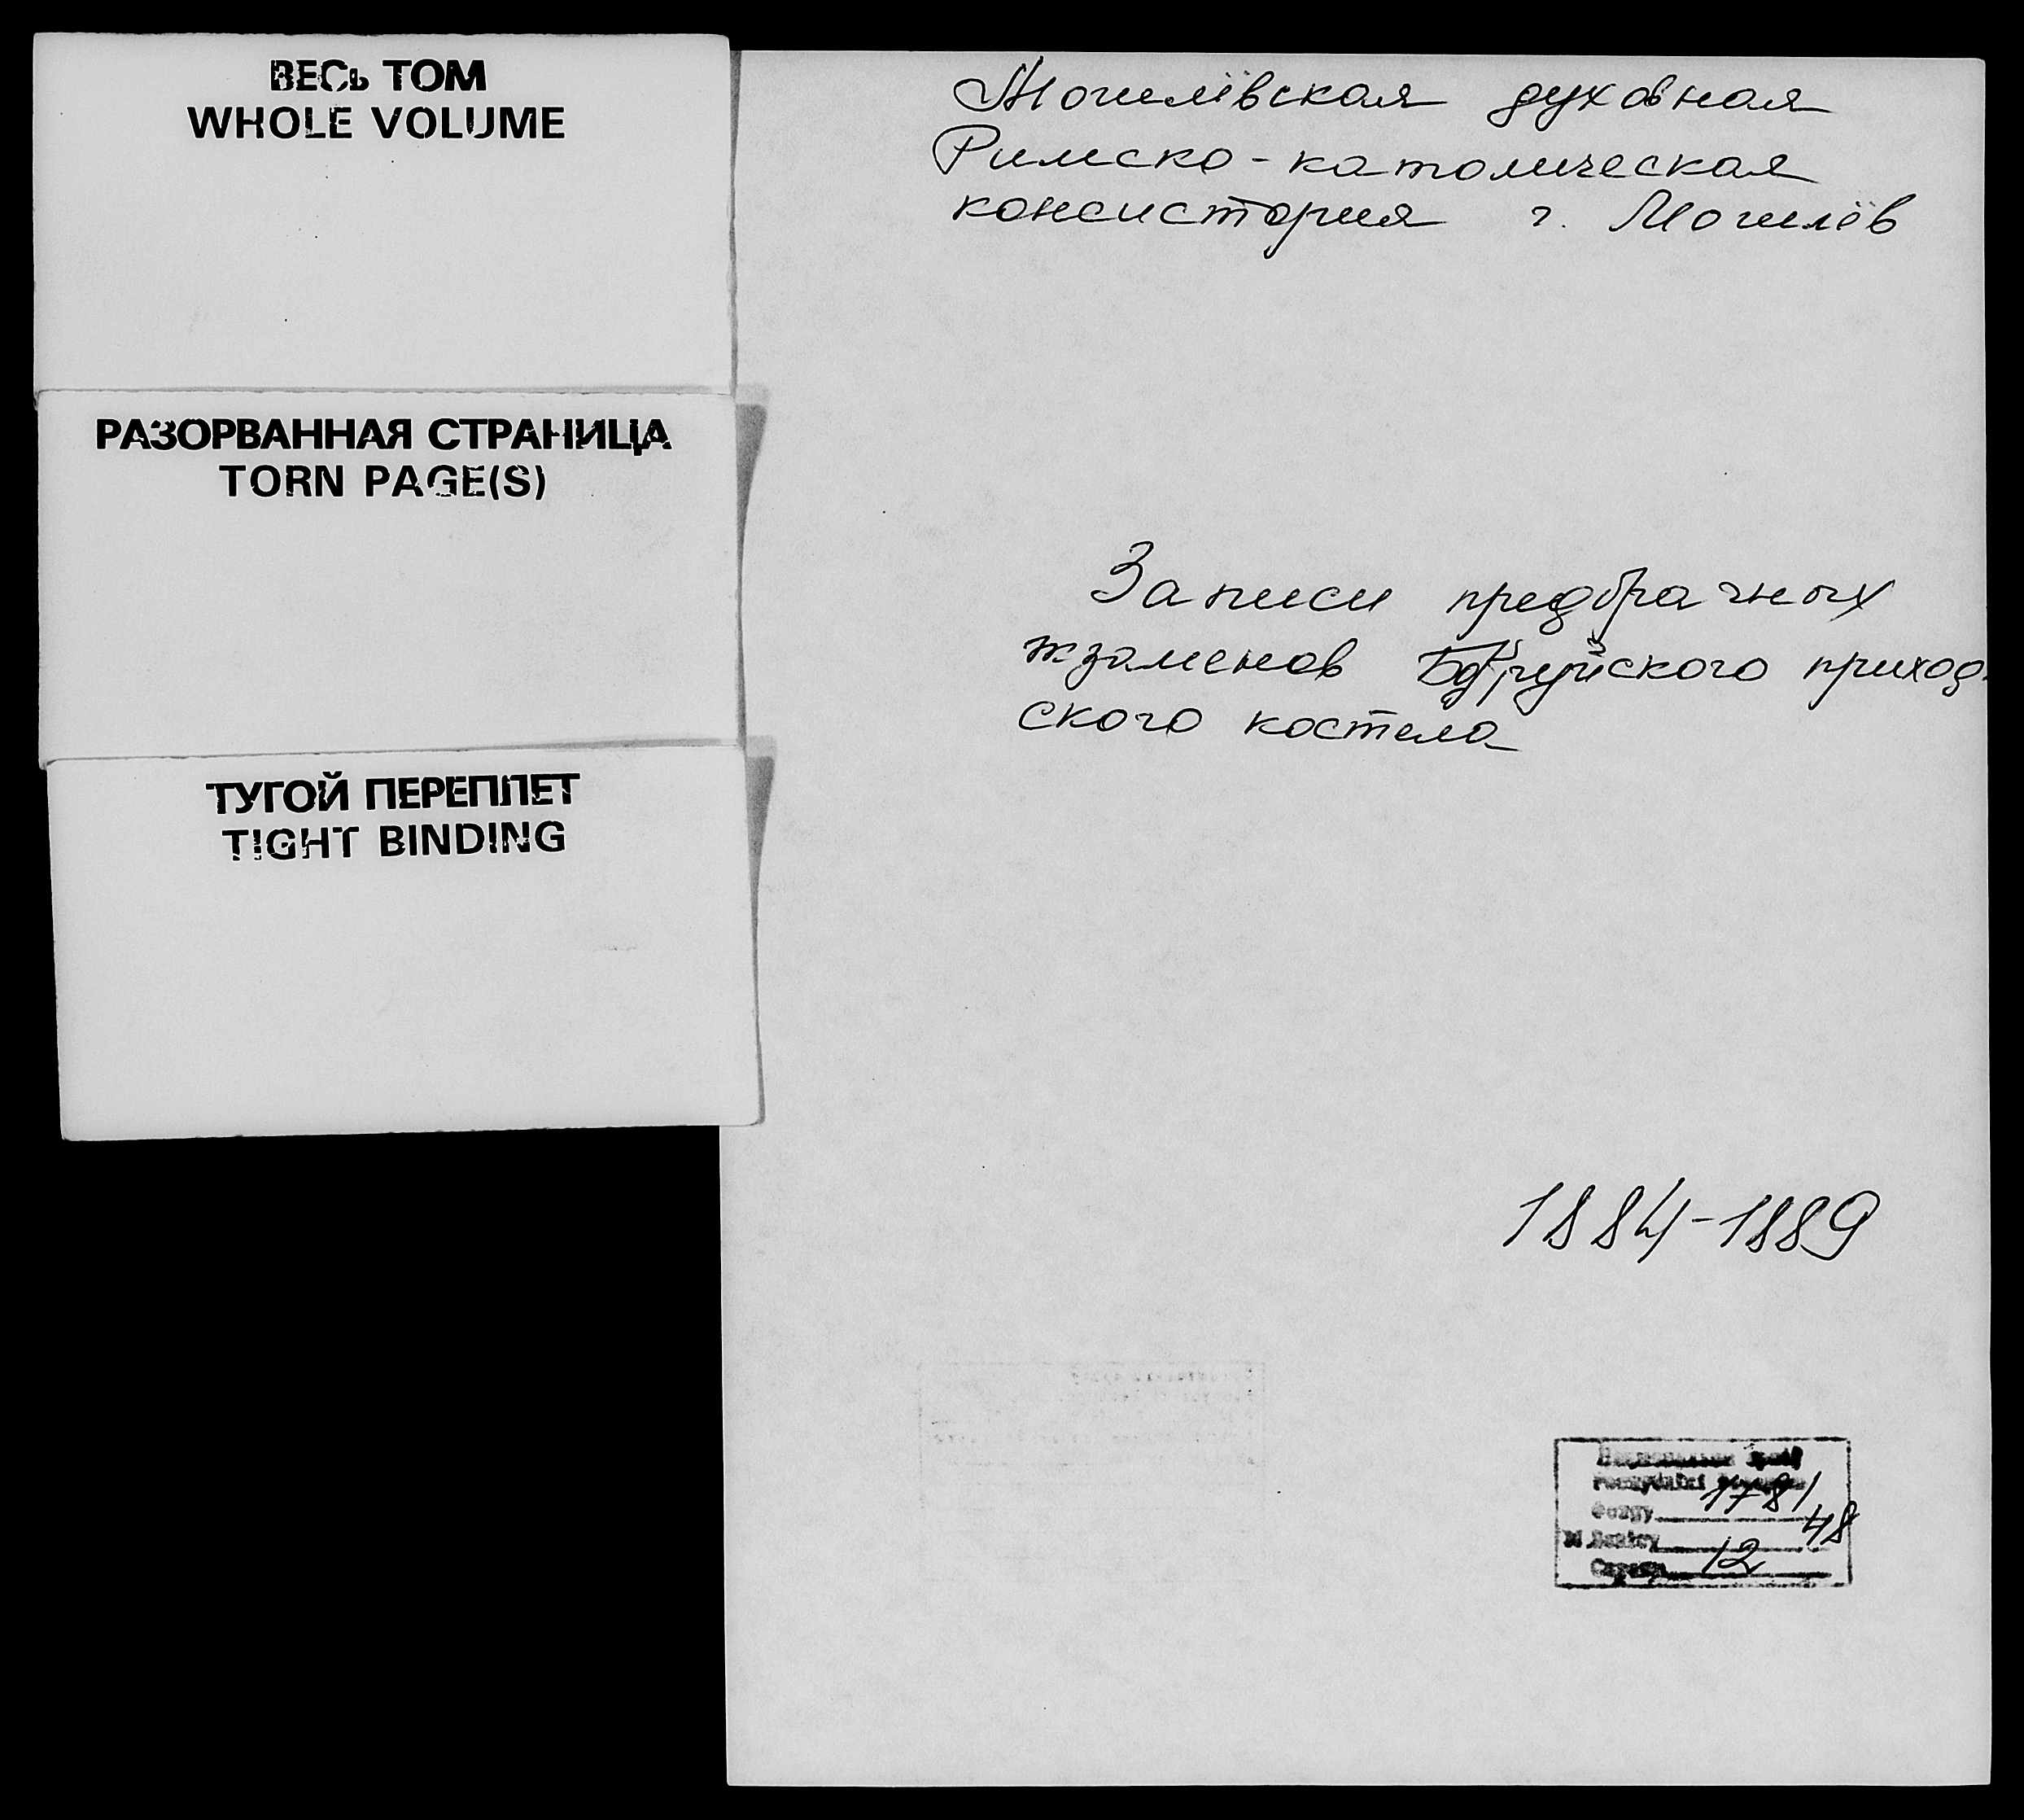 ВЕСЬ ТОМ
WHOLE VOLUME
РАЗОРВАННАЯ СТРАНИЦА
TORN PAGE(S)
ТУГОЙ ПЕРЕПЛЕТ
TIGHT BINDING
Могилёвская духовная
Римско-католическая
консистория г. Могилёв
Записи предбрачных
экзаменов приход-
ского костела
1884-1889
1781
48
12